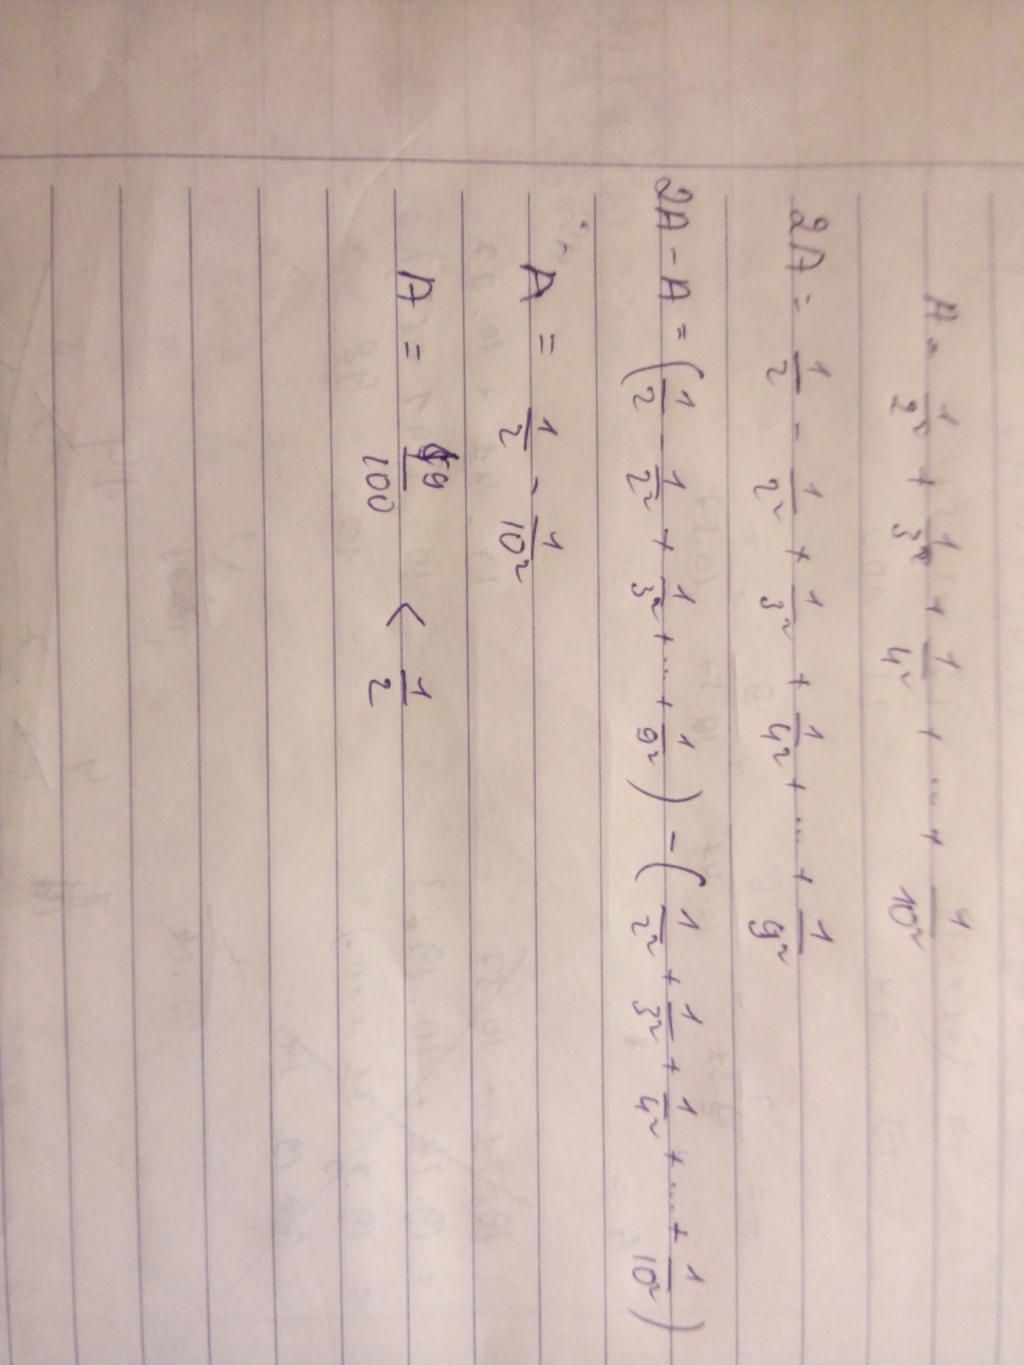 A = 1/2² + 1/3² + 1/4² + ... + 1/10²
2A = 1/2 - 1/2² + 1/3² + 1/4² + ... + 1/9²
2A - A = (1/2 - 1/2² + 1/3² + ... + 1/9²) - (1/2² + 1/3² + 1/4² + ... + 1/10²)
A = 1/2 - 1/10²
A = 49/100 < 1/2